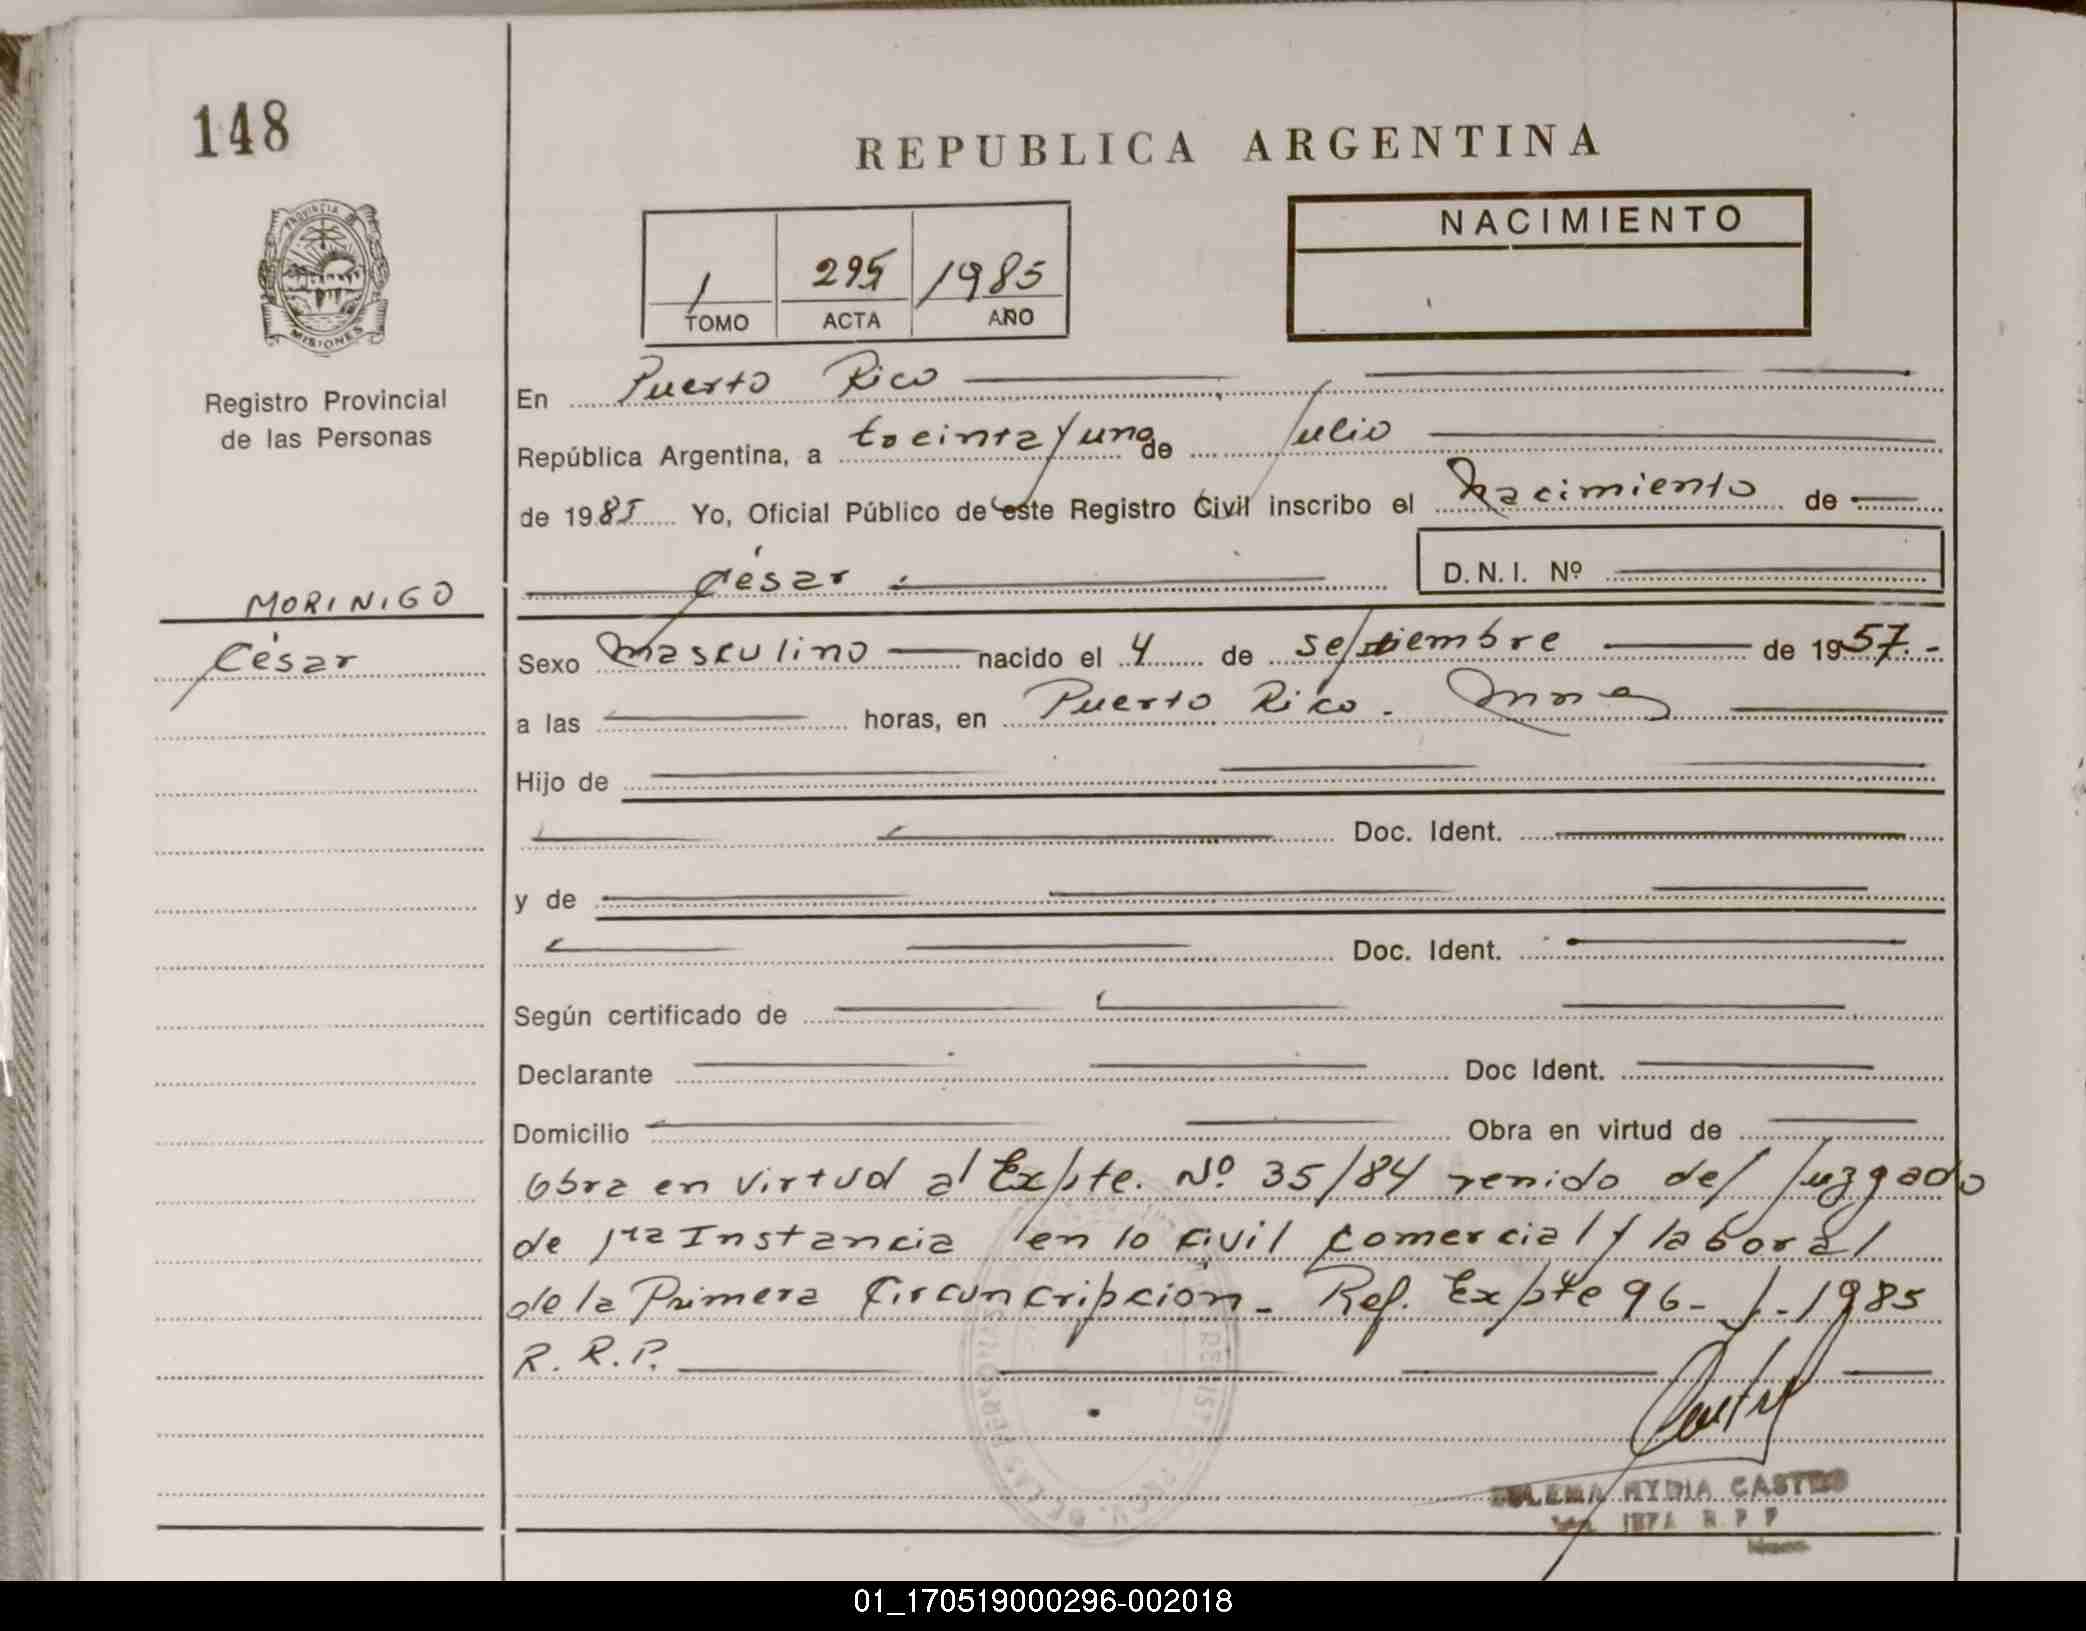 148
REPUBLICA ARGENTINA
PROVINCIA DE
MISIONES
1 295 1985
TOMO ACTA AÑO
NACIMIENTO
Registro Provincial
de las Personas
En Puerto Rico
República Argentina, a treinta y uno de Julio
de 1985 Yo, Oficial Público de este Registro Civil inscribo el Nacimiento de
César D.N.I. Nº
MORINIGO
César
Sexo Masculino nacido el 4 de septiembre de 1957.-
a las horas, en Puerto Rico. Mnes
Hijo de
Doc. Ident.
y de
Doc. Ident.
Según certificado de
Declarante Doc Ident.
Domicilio Obra en virtud de
Obra en virtud al Expte. Nº 35/84 venido del Juzgado
de 1ra Instancia en lo civil comercial y laboral
de la Primera Circuncripción - Ref. Expte 96- J.-1985
R.R.P.
MYDIA CASTRO
01_170519000296-002018